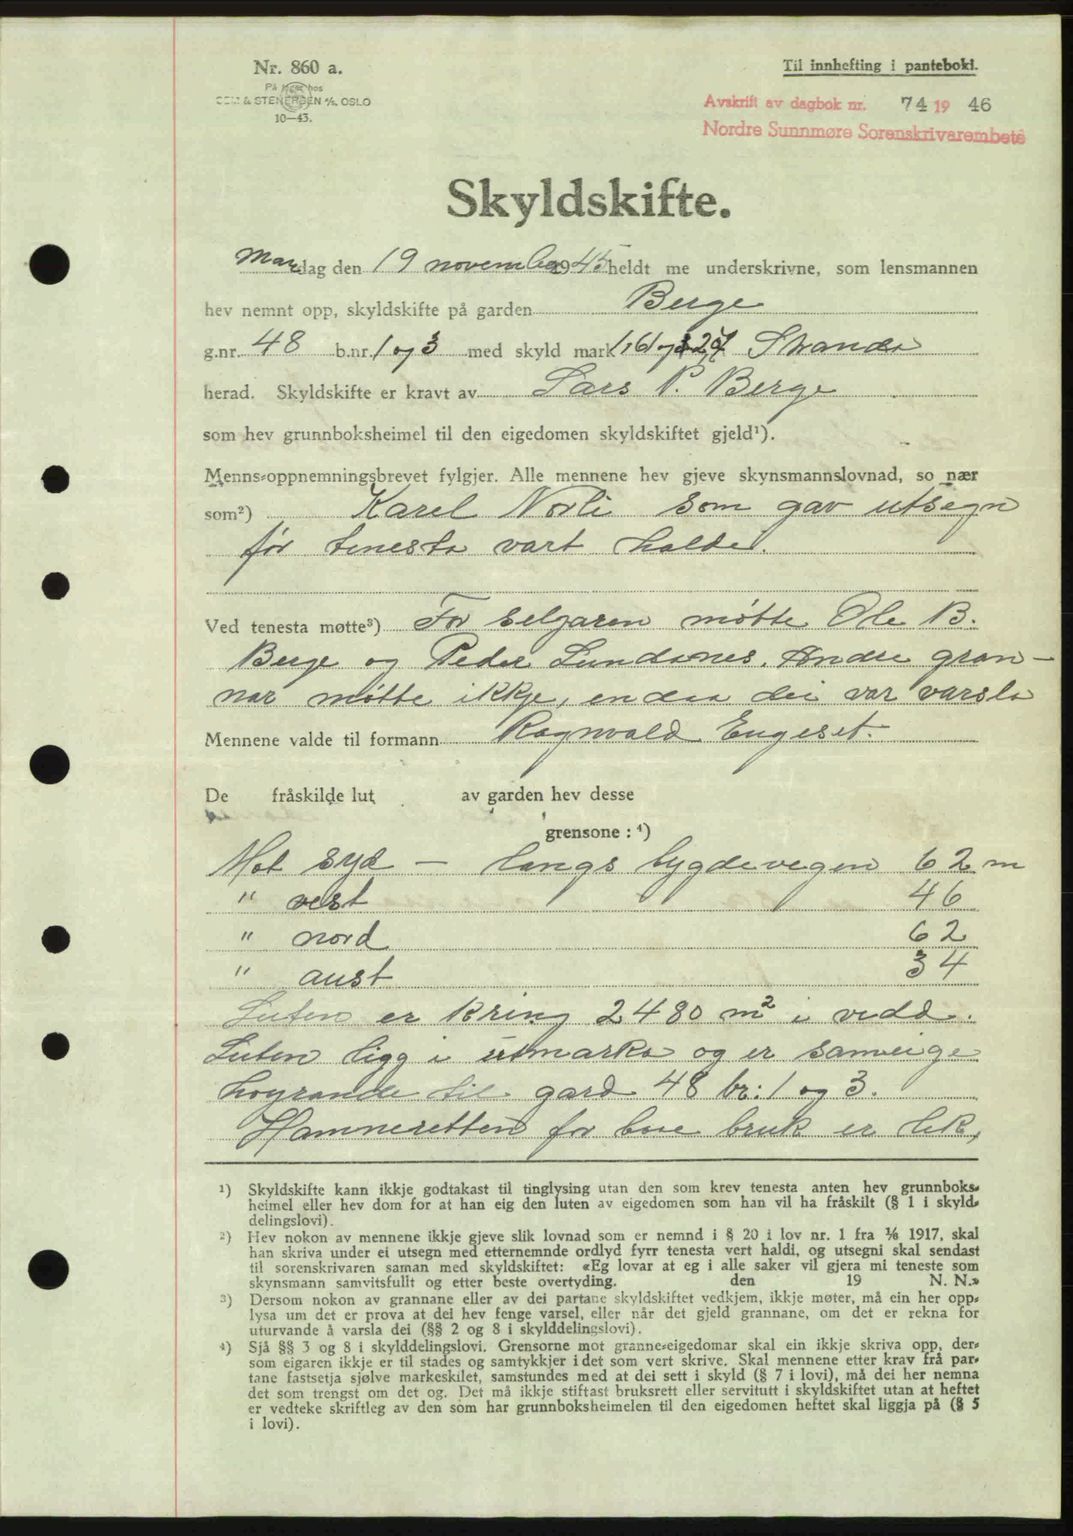 Nr. 860 a.
På lager hos
SEM & STENERSEN A/S, OSLO
10—43.
Til innhefting i panteboki.
Avskrift av dagbok nr. 74 19 46
Nordre Sunnmøre Sorenskrivarembete
Skyldskifte.
Mandag den 19 november 1945 heldt me underskrivne, som lensmannen
hev nemnt opp, skyldskifte på garden Berge
g.nr. 48 b.nr. 1 og 3 med skyld mark Stranda
herad. Skyldskifte er kravt av Lars P. Berge
som hev grunnboksheimel til den eigedomen skyldskiftet gjeld¹).
Menns-oppnemningsbrevet fylgjer. Alle mennene hev gjeve skynsmannslovnad, so nær
som²) Karel Norli som gav utsegn
før tenesta vart halde.
Ved tenesta møtte³) For selgaren møtte Ole B.
Berge og Peder Lundanes. Andre gran-
nar møtte ikkje, endaa dei var varsla
Mennene valde til formann Ragnvald Engeset.
De fråskilde lut av garden hev desse
grensone : ⁴)
Mot syd — langs bygdevegen 62 m
" vest 46
" nord 62
" aust 34
Luten er kring 2480 m² i vidd.
Luten ligg i utmarka og er sameige
høyrande til gard 48 br: 1 og 3.
Hamneretten for bae bruk er lik,
¹) Skyldskifte kann ikkje godtakast til tinglysing utan den som krev tenesta anten hev grunnboks-
heimel eller hev dom for at han eig den luten av eigedomen som han vil ha fråskilt (§ 1 i skyld-
delingslovi).
²) Hev nokon av mennene ikkje gjeve slik lovnad som er nemnd i § 20 i lov nr. 1 fra 1/6 1917, skal
han skriva under ei utsegn med etternemnde ordlyd fyrr tenesta vert haldi, og utsegni skal sendast
til sorenskrivaren saman med skyldskiftet: «Eg lovar at eg i alle saker vil gjera mi teneste som
skynsmann samvitsfullt og etter beste overtyding. den 19 N. N.»
³) Dersom nokon av grannane eller av dei partane skyldskiftet vedkjem, ikkje møter, må ein her opp-
lysa um det er prova at dei hev fenge varsel, eller når det gjeld grannane, om det er rekna for
uturvande å varsla dei (§§ 2 og 8 i skylddelingslovi).
⁴) Sjå §§ 3 og 8 i skylddelingslovi. Grensorne mot granne-eigedomar skal ein ikkje skriva opp, der-
som eigaren ikkje er til stades og samtykkjer i det som vert skrive. Skal mennene etter krav frå par-
tane fastsetja sjølve markeskilet, samstundes med at dei sett i skyld (§ 7 i lovi), må dei her nemna
det som trengst om det og. Det må ikkje stiftast bruksrett eller servitutt i skyldskiftet utan at heftet
er vedteke skriftleg av den som har grunnboksheimelen til den eigedomen heftet skal liggja på (§ 5
i lovi).